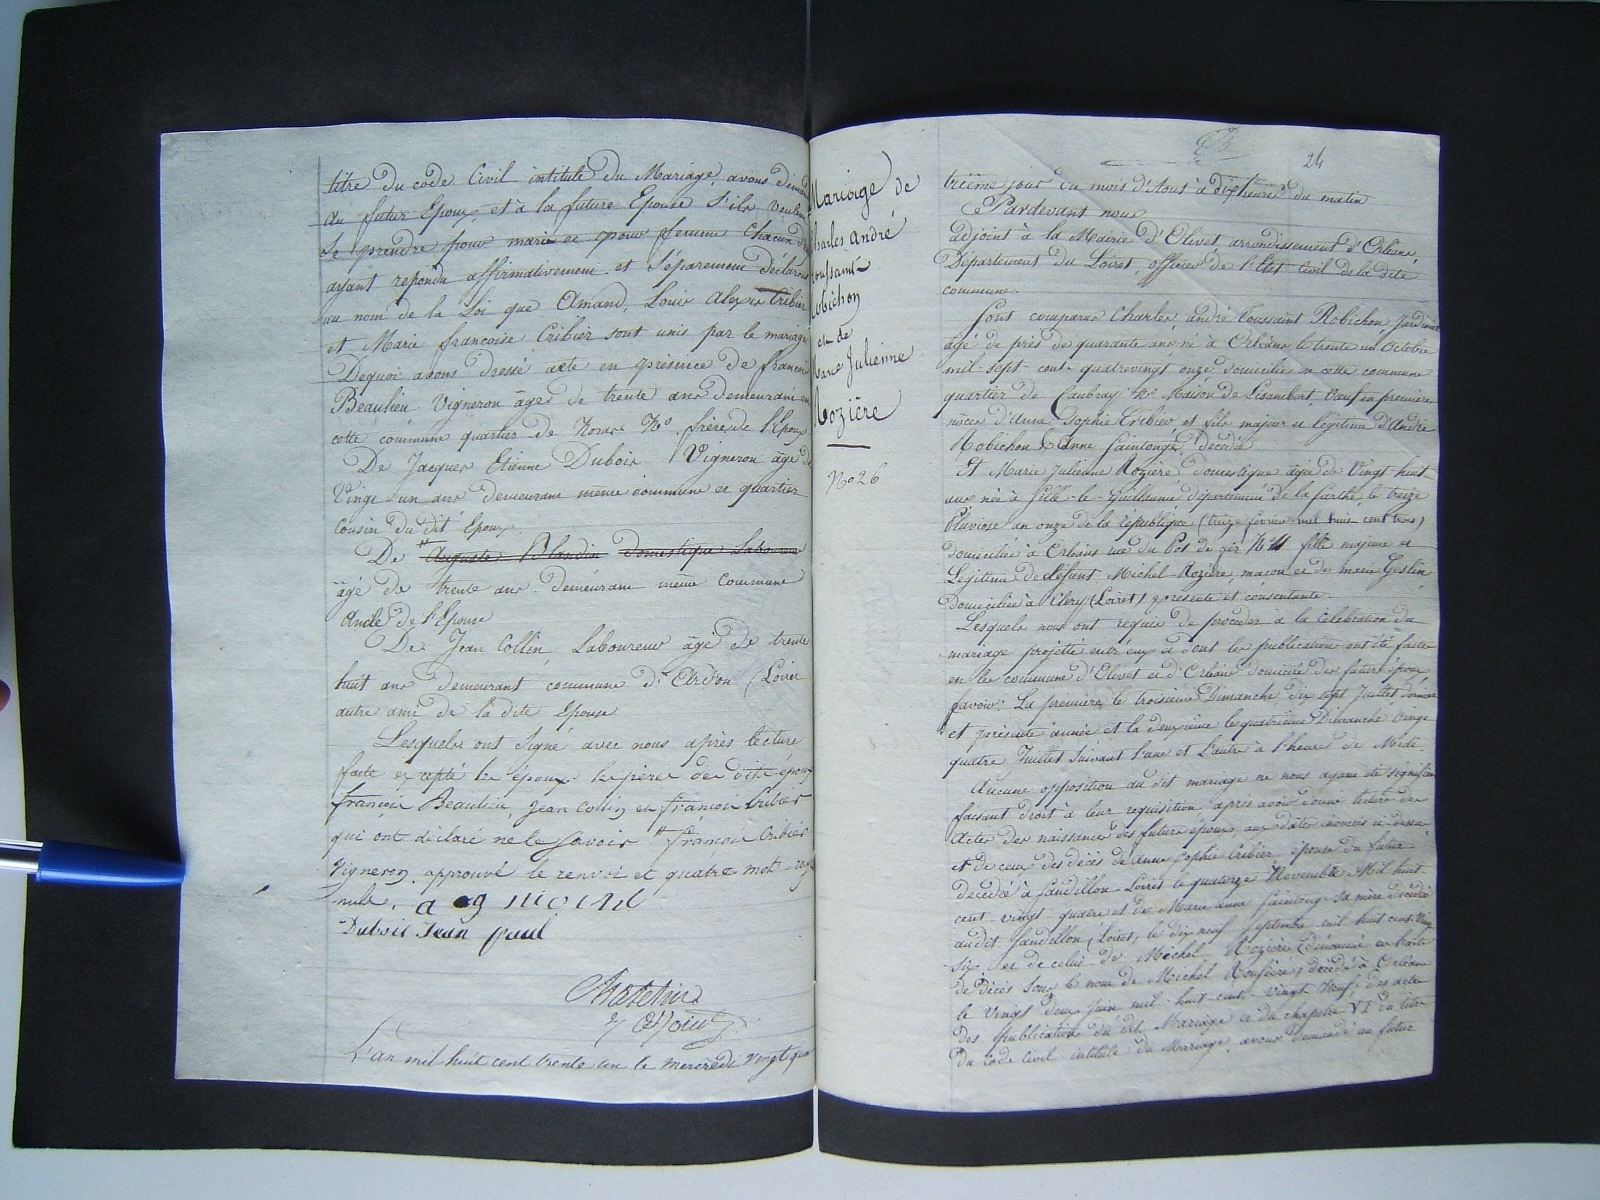 titre du code Civil intitulé du Mariage, avons deman
au futur Epoux, et à la future Epouse s'ils veulent
se prendre pour mari et pour femme chacun d
ayant repondu affirmativement et séparement déclarons
au nom de la Loi que Amand, Louis Alexis Cribier
et Marie francoise Cribier sont unis par le mariage
Dequoi avons dressé acte en présence de francois
Beaulieu Vigneron âgé de trente ans demeurant en
cette commune quartier de No. frère de l'Epoux
De Jacques Etienne Dubois Vigneron âgé de
Vingt un ans demeurant même commune et quartier
Cousin du dit Epoux
De Auguste Blandin domestique Laboureur
âgé de trente ans demeurant même Commune
Oncle de l'Epouse
De Jean Collin Laboureur âgé de trente
huit ans demeurant commune d'Ardon (Loiret
autre ami de la dite Epouse
Lesquels ont signé avec nous après lecture
faite excepté les époux les pères des dits époux
françois Beaulieu, Jean Collin et françois Cribier
qui ont déclaré ne le savoir # françois Cribier
Vigneron. approuvé le renvoi et quatre mots rayé
nuls.
Dubois Jean paul
adjoint
L'an mil huit cent trente un le mercredi Vingt qua
24
Mariage de
Charles André
Toussaint
Robichon
et de
Marie Julienne
Rozière
No 26
trième jour du mois d'Aout à dix heures du matin
Pardevant nous
adjoint à la Mairie d'Olivet, arrondissement d'Orléans,
Département du Loiret, officier de l'Etat Civil de la dite
commune.
Sont comparus Charles, andré Toussaint Robichon Jardinier
âgé de près de quarante ans né à Orléans le trente un Octobre
mil-sept-cent-quatrevingt onze domicilié en cette commune
quartier de Caubray No Maison de Lisambert, Veuf en première
nôces d'Anne Sophie Cribier et fils majeur et légitime d'André
Robichon & Anne Saintonge, décédé
Et Marie Julienne Rozière domestique âgée de Vingt-huit
ans née à fillé-le-Guillaume département de la Sarthe, le treize
Pluviose an onze de la république (treize février mil huit cent trois)
domiciliée à Orléans rue du Pot de fer No 11 fille majeure et
Légitime de défunt Michel Rozière, maçon et de marie Geslin
domiciliée à Clery (Loiret) présente et consentente.
Lesquels nous ont requis de procéder à la Célébration du
mariage projetté entr'eux et dont les publications ont été faites
en les communes d'Olivet et d'Orléans domicile des futurs époux
favoir: La première le troisième Dimanche dix sept Juillet dernier
et présente année et la deuxième le quatrième Dimanche vingt
quatre Juillet suivant l'une et l'autre à l'heure de Midi.
Aucune opposition au dit mariage ne nous ayant été signifiée
faisant droit à leur requisition après avoir donné lecture des
Actes des naissances des futurs époux, aux dates énoncées ci dessus
et de ceux des décès de Anne Sophie Cribier, épouse du futur
décédée à Sandillon Loiret le quatorze Novembre Mil huit
cent vingt quatre et de Marie anne Saintonge sa mère décédée
audit Sandillon (Loiret) le dix neuf Septembre mil huit cent vingt
six et de celui de Michel Rozière (dénommé en l'acte
de décès sous le nom de Michel Rousière) décédé à Orléans
le Vingt deux Juin mil-huit-cent-vingt Neuf, des actes
des publications du dit Mariage et du chapitre VI du titre
du code Civil intitulé du Mariage, avons demandé au futur